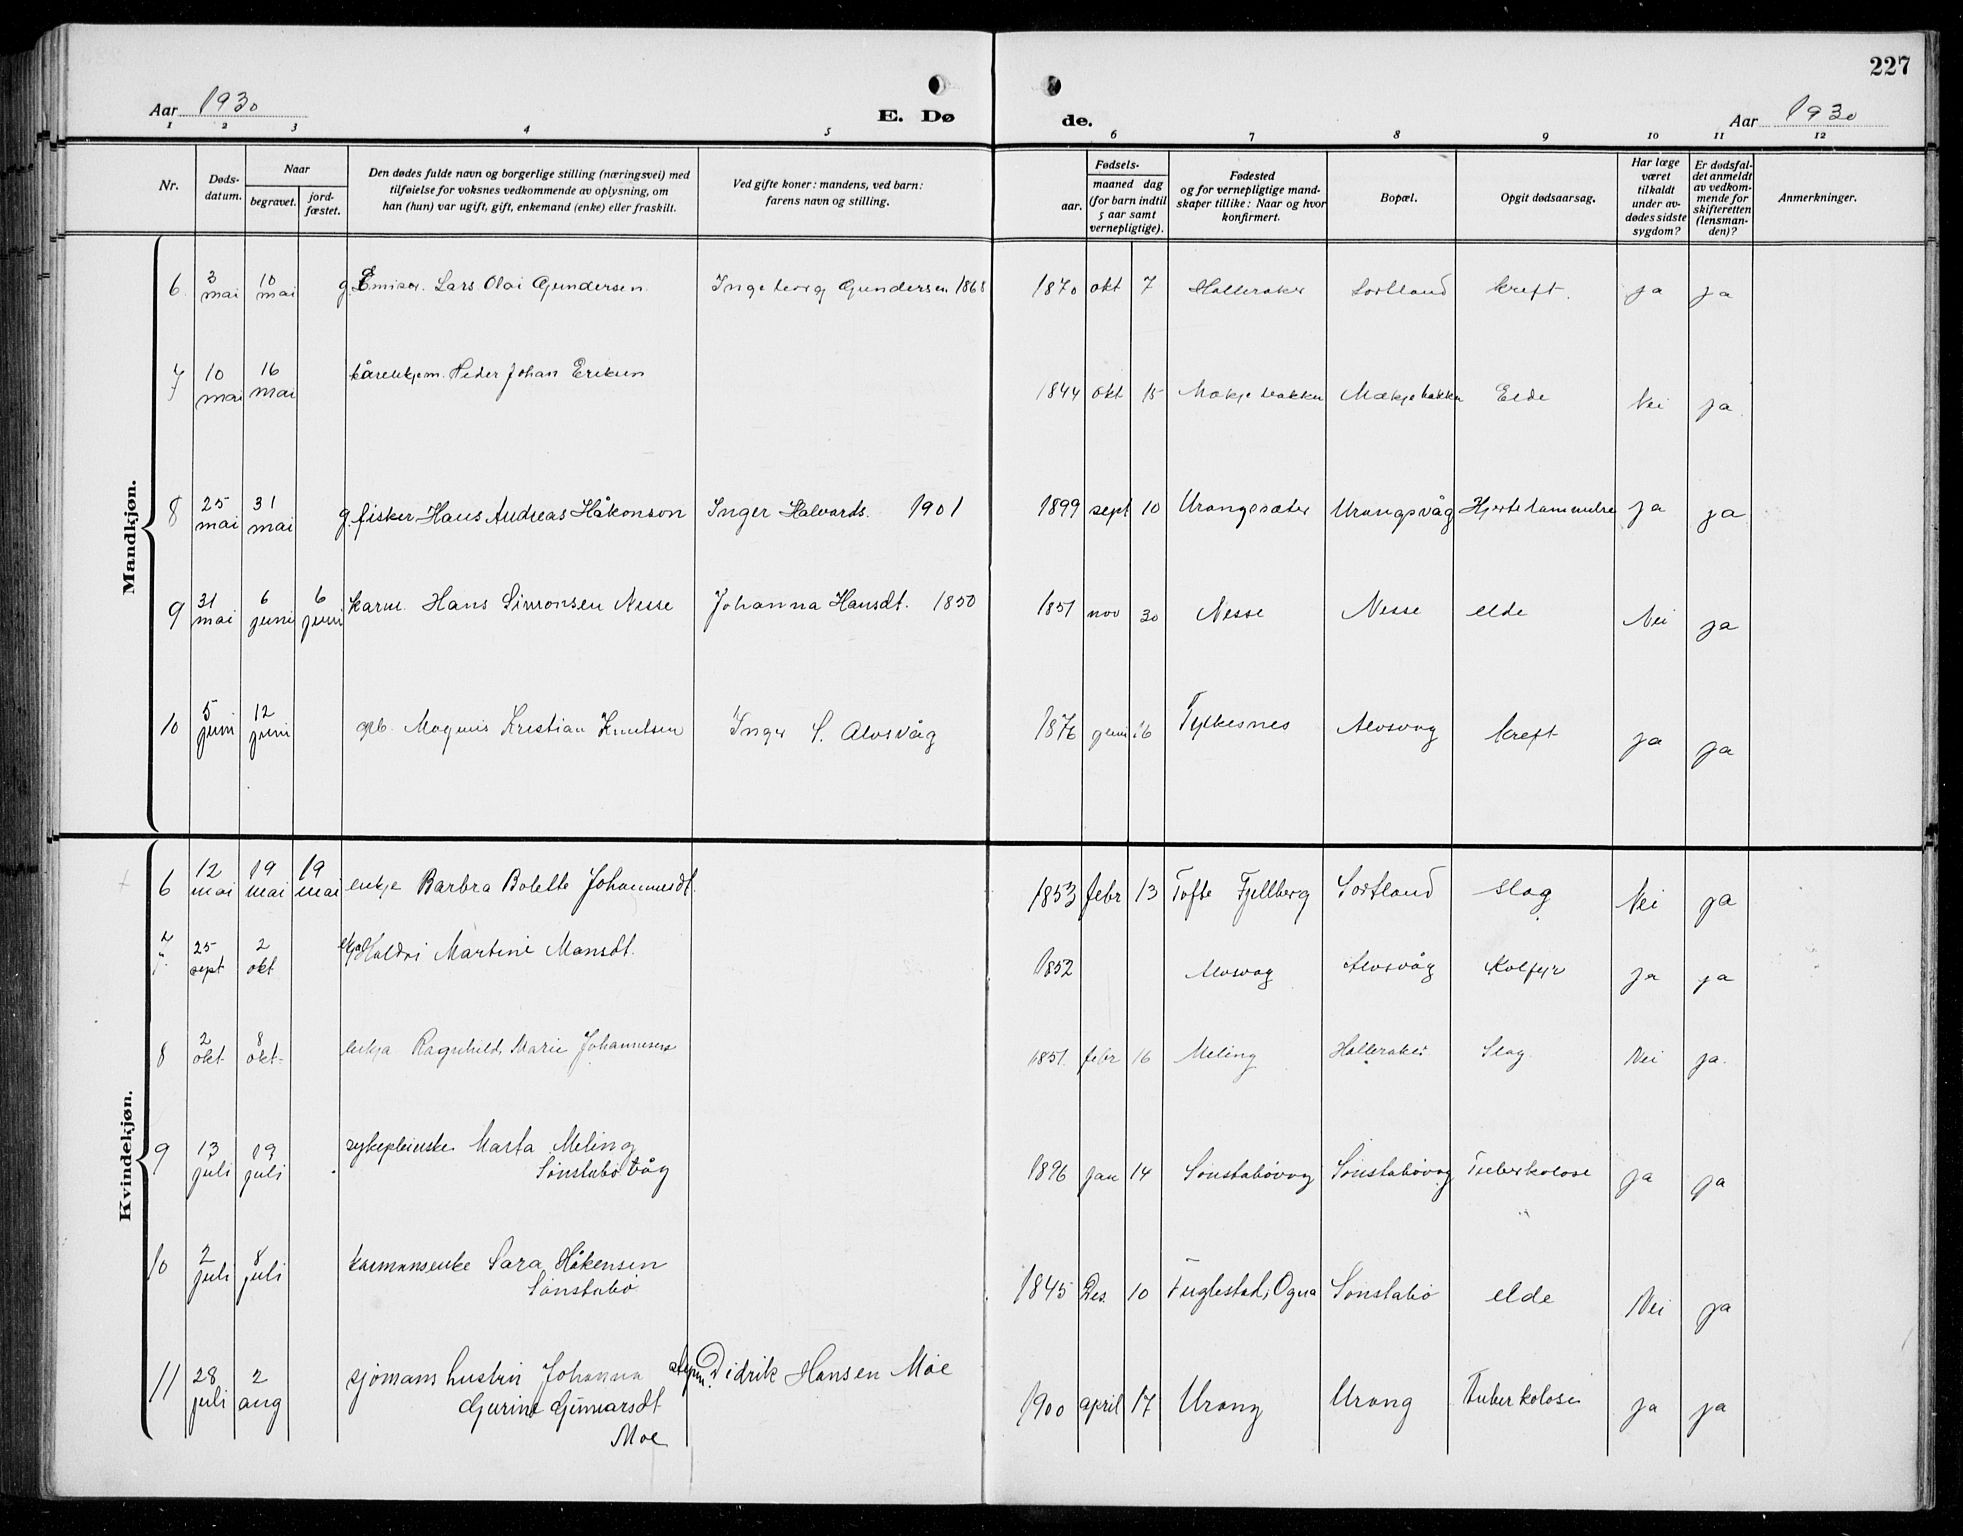 227
Aar 1930
E. Dø
de.
Aar 1930
1 2 3 4 5 6 7 8 9 10 11 12
Nr.
Døds-
datum.
Naar
begravet.
jord-
fæstet.
Den dødes fulde navn og borgerlige stilling (næringsvei) med
tilføielse for voksnes vedkommende av oplysning, om
han (hun) var ugift, gift, enkemand (enke) eller fraskilt.
Ved gifte koner: mandens, ved barn:
farens navn og stilling.
Fødsels-
aar.
maaned dag
(for barn indtil
5 aar samt
vernepligtige).
Fødested
og for vernepligtige mand-
skaper tillike: Naar og hvor
konfirmert.
Bopæl.
Opgit dødsaarsag.
Har læge
været
tilkaldt
under av-
dødes sidste
sygdom?
Er dødsfal-
det anmeldt
av vedkom-
mende for
skifteretten
(lensman-
den)?
Anmerkninger.
Mandkjøn.
6 3 mai 10 mai g Emisær. Lars Olai Gundersen Ingeborg Gundersen 1868 1870 okt 7 Halleraker Sortland kreft. ja ja
7 10 mai 16 mai kårenkjem. Peder Johan Eriksen 1844 okt 15 Mækjebakken Mækjebakken Elde Nei ja
8 25 mai 31 mai g fisker Hans Andreas Håkonson Inger Halvards. 1901 1899 sept 10 Urangsæter Urangsvåg Hjertelammelse ja ja
9 31 mai 6 juni 6 juni karm. Hans Simonsen Nesse Johanna Hansdt. 1850 1851 nov 30 Nesse Nesse elde Nei ja
10 5 juni 12 juni gb. Magnus Kristian Knutsen Inger S. Alvsvåg 1876 juni 26 Fylkesnes Alvsvag kreft ja ja
Kvindekjøn.
6 12 mai 19 mai 19 mai enkje Barbra Bolette Johannesdt. 1853 febr 13 Tofte Fjellberg Sortland slag Nei ja
7 25 sept 2 okt Haldri Martine Mansdt. 1852 Alvsvag Alvsvåg Kolfyr ja ja
8 2 okt 8 okt enkja Ragnhild Marie Johannesen 1851 febr 16 Meling Halleraker Slag Nei ja.
9 13 juli 19 juli sykepleiuske Marta Meling
Sønstabø våg 1896 jan 14 Sønstabøvag Sønstabøvag Tuberkolose ja ja
10 2 juli 8 juli karmansenke Sara Håkensen
Sønstabø 1845 Des. 10 Fuglestad, Ogna Sønstabø elde Nei ja
11 28 juli 2 aug sjømans hustru Johanna
Gurine Gunnarsdt
Moe Didrik Hansen Moe 1900 april 17 Urang Urang Tuberkolose ja ja